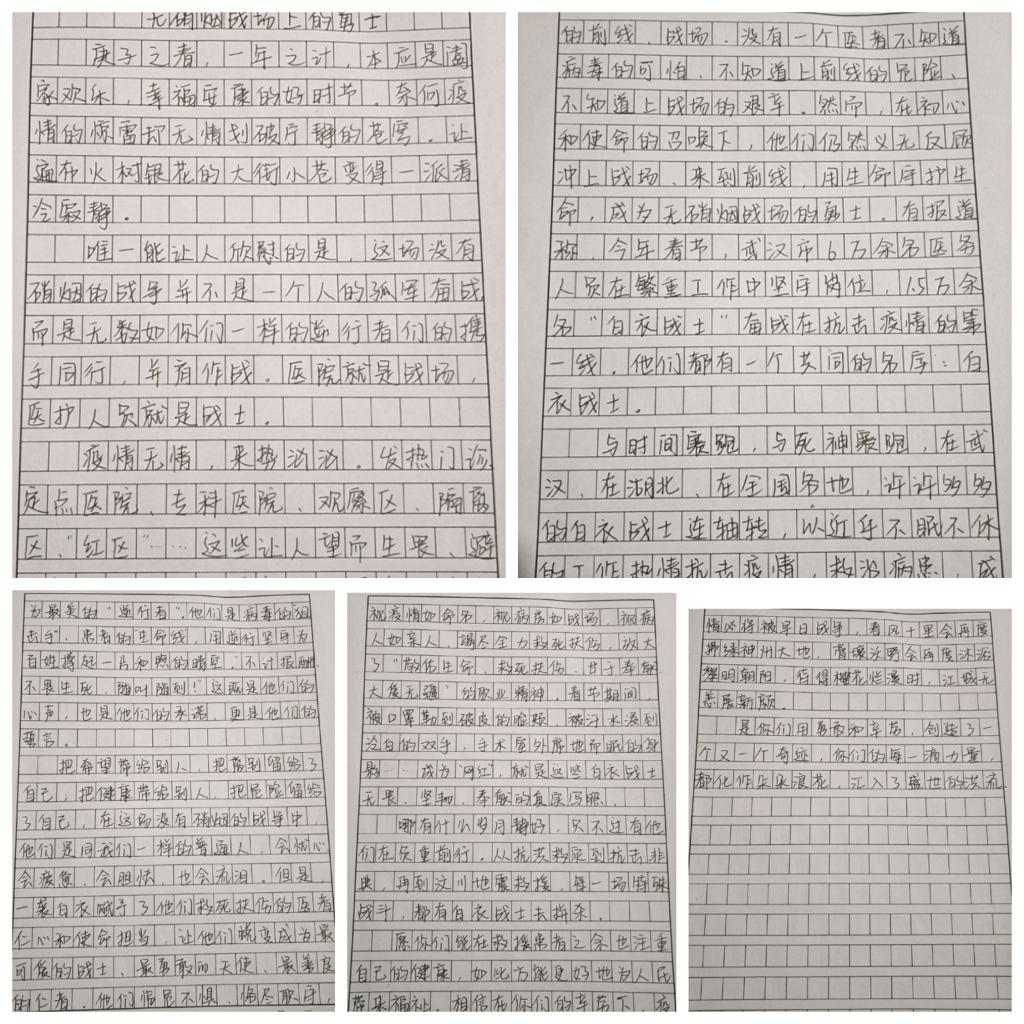 无硝烟战场上的勇士
庚子之春，一年之计，本应是阖
家欢乐，幸福安康的好时节。奈何疫
情的惊雷却无情划破宁静的苍穹。让
遍布火树银花的大街小巷变得一派清
冷寂静。
唯一能让人欣慰的是，这场没有
硝烟的战争并不是一个人的孤军奋战
而是无数如你们一样的逆行者们的携
手同行，并肩作战。医院就是战场，
医护人员就是战士。
疫情无情，来势汹汹。发热门诊、
定点医院、专科医院、观察区、隔离
区、“红区”……这些让人望而生畏、避
的前线、战场。没有一个医者不知道
病毒的可怕、不知道上前线的危险、
不知道上战场的艰辛。然而，在初心
和使命的召唤下，他们仍然义无反顾
冲上战场、来到前线，用生命守护生
命，成为无硝烟战场的勇士。有报道
称，今年春节，武汉市6万余名医务
人员在繁重工作中坚守岗位，1.5万余
名“白衣战士”奋战在抗击疫情的第
一线。他们都有一个共同的名字：白
衣战士。
与时间赛跑，与死神赛跑，在武
汉、在湖北、在全国各地，许许多多
的白衣战士连轴转，以近乎不眠不休
的工作热情抗击疫情，救治病患，成
为最美的“逆行者”。他们是病毒的“狙
击手”、患者的“生命线，用逆行坚守为
百姓撑起一片和煦的晴空。不计报酬、
不畏生死，随叫随到！”这既是他们的
心声，也是他们的承诺，更是他们的
誓言。
把希望带给别人，把离别留给了
自己，把健康带给别人，把危险留给
了自己，在这场没有硝烟的战争中，
他们是同我们一样的普通人，会忧心
会疲惫、会胆怯，也会流泪。但是，
一袭白衣赋予了他们救死扶伤的医者
仁心和使命担当，让他们蜕变成为最
可爱的战士、最勇敢的天使、最善良
的仁者。他们临危不惧、恪尽职守，
视疫情如命令，视病房如战场，视病
人如亲人，竭尽全力救死扶伤，放大
了“敬佑生命、救死扶伤、甘于奉献
大爱无疆”的职业精神。春节期间，
被口罩勒到破皮的脸颊，被汗水浸到
泛白的双手，手术室外席地而眠的身
影……成为“网红”，就是这些白衣战士
无畏、坚韧、奉献的真实写照。
哪有什么岁月静好，只不过有他
们在负重前行。从抗洪救灾到抗击非
典，再到汶川地震救援，每一场特殊
战斗，都有白衣战士去拼杀。
愿你们能在救援患者之余也注重
自己的健康，如此方能更好地为人民
带来福祉。相信在你们的辛劳下，疫
情必将被早日战争，春风十里会再度
拂绿神州大地，膏壤沃野会再度沐浴
耀明朝阳，待得樱花烂漫时，江城无
恙展新颜。
是你们用勇敢和辛劳，创造了一
个又一个奇迹，你们的每一滴力量，
都化作朵朵浪花，汇入了盛世的洪流